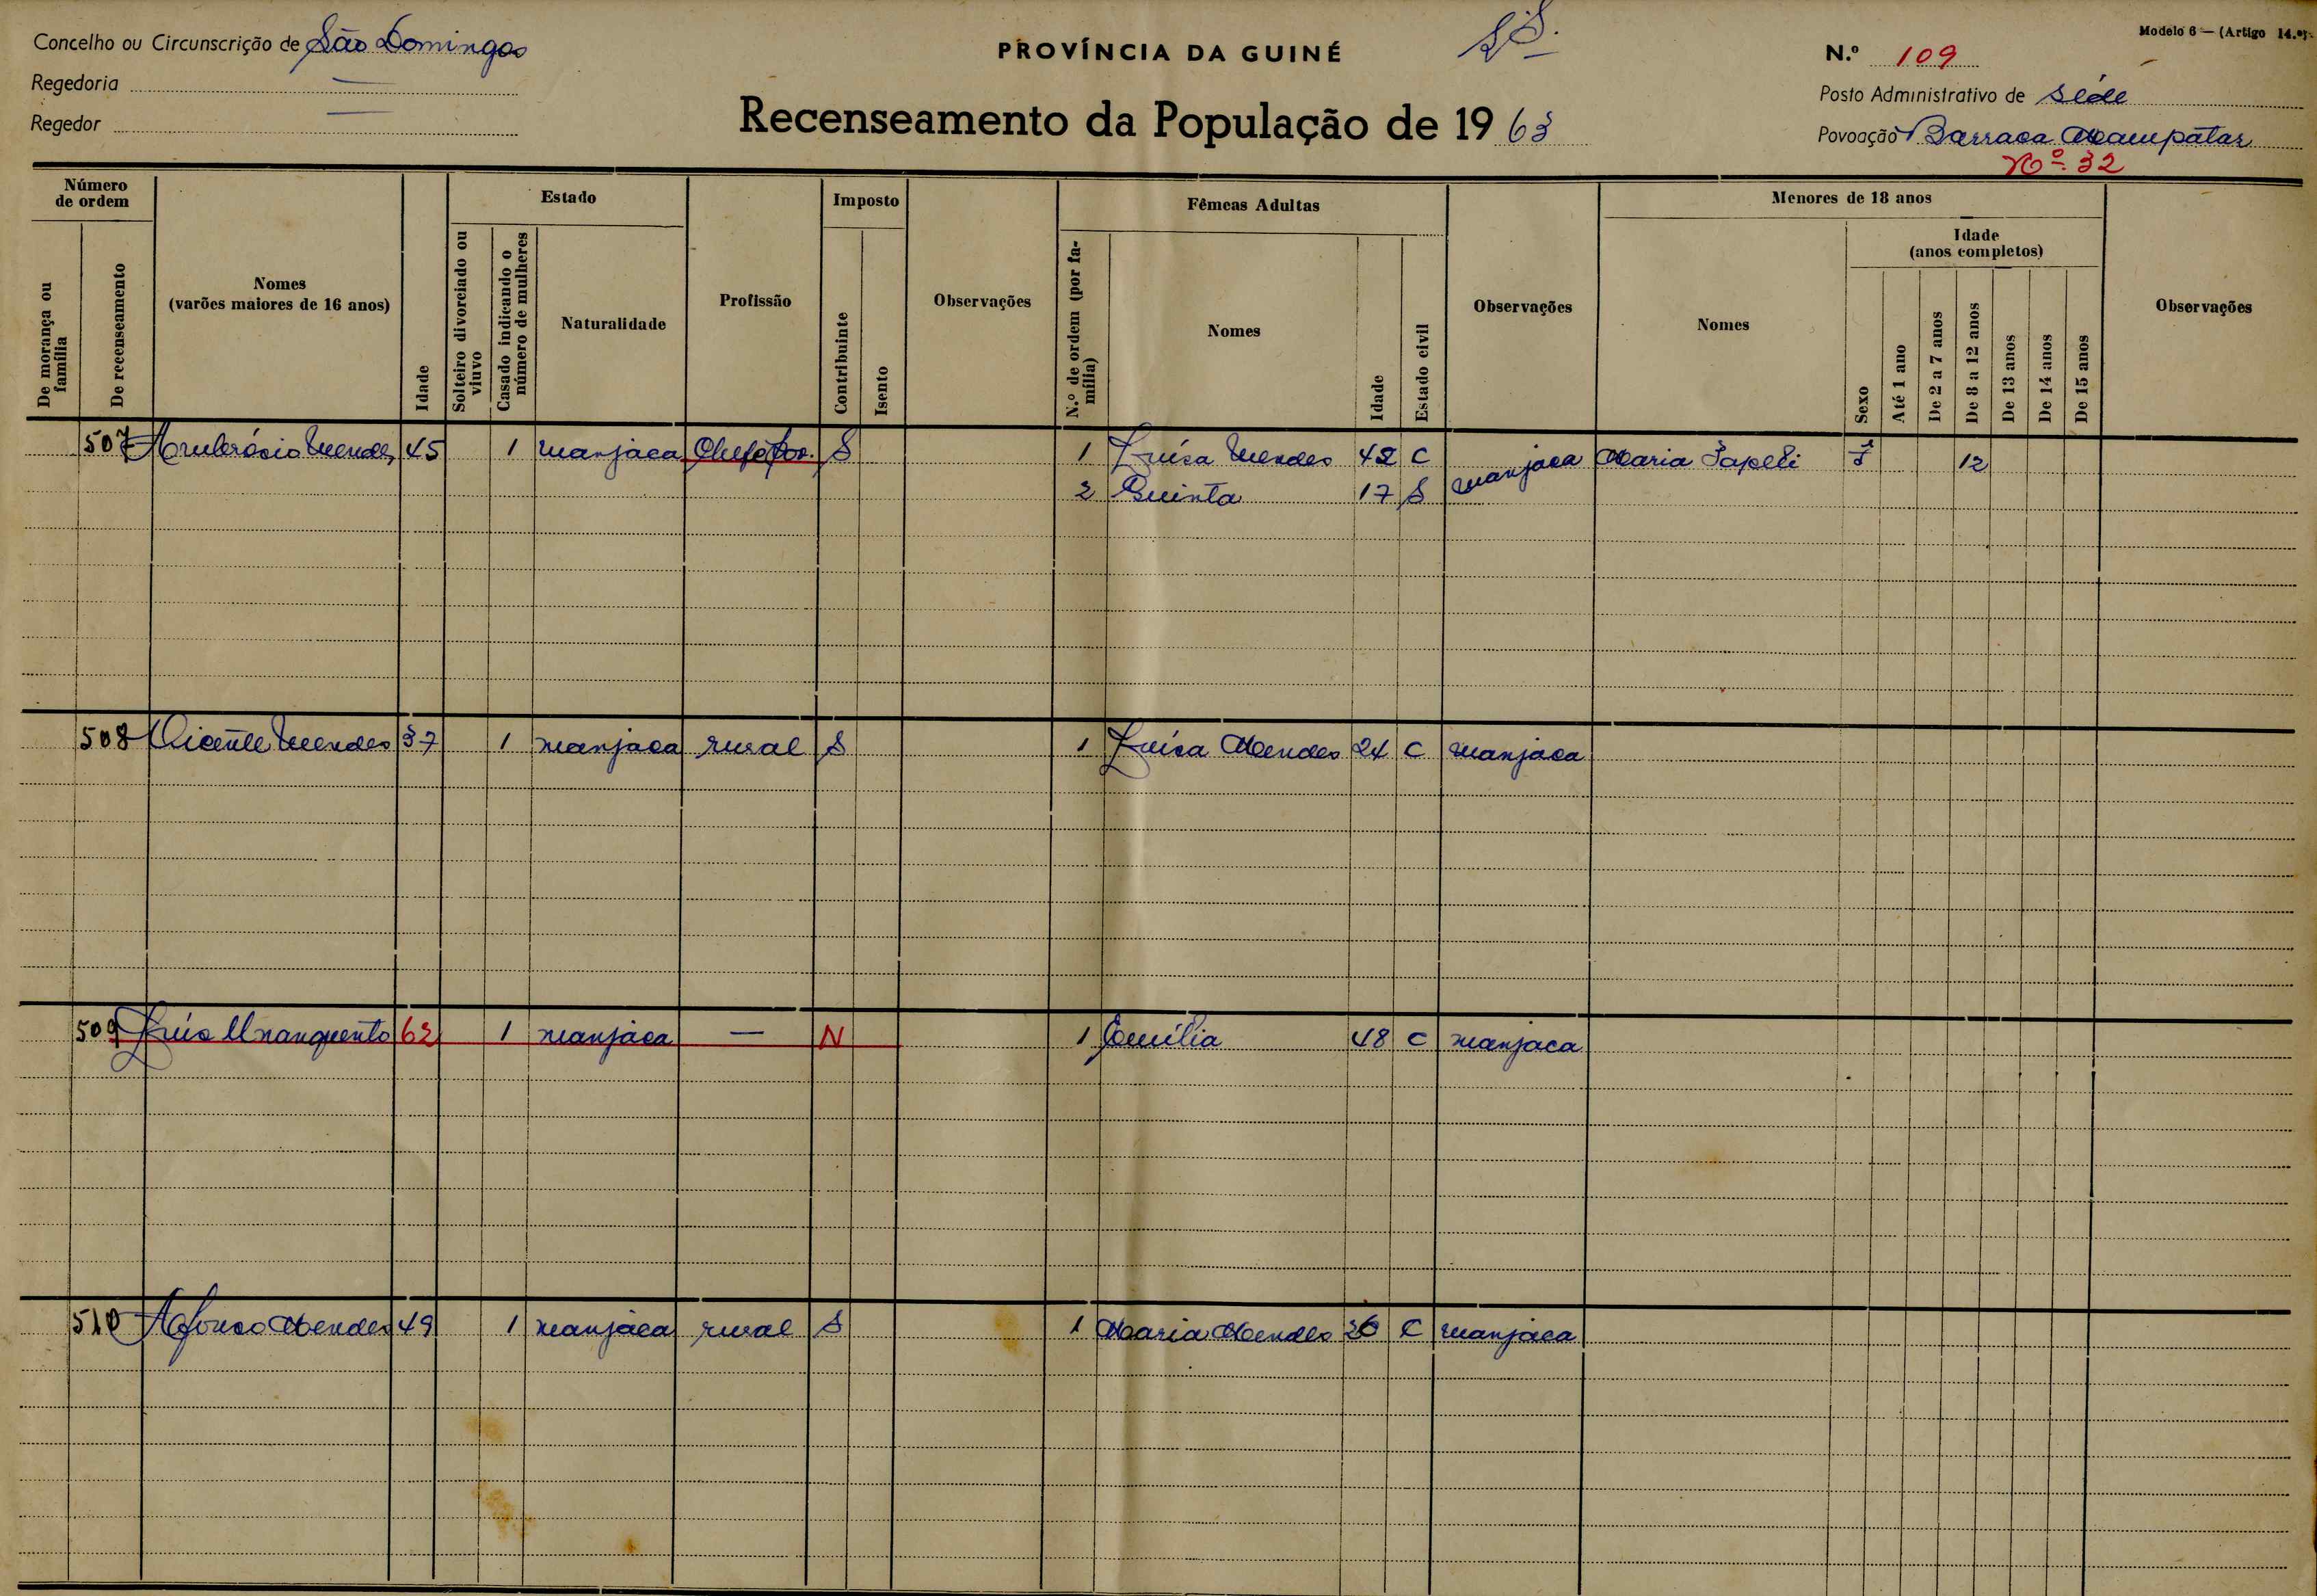 Concelho ou Circunscrição de São Domingos
Regedoria —
Regedor —
PROVÍNCIA DA GUINÉ
Recenseamento da População de 19 63
Modelo 6 — (Artigo 14.º)
N.º 109
Posto Administrativo de Séde
Povoação Barraca Mampatar
Nº 32
Número de ordem
De morança ou família
De recenseamento
Nomes
(varões maiores de 16 anos)
Idade
Estado
Solteiro divorciado ou viuvo
Casado indicando o número de mulheres
Naturalidade
Profissão
Imposto
Contribuinte
Isento
Observações
Fêmeas Adultas
N.º de ordem (por família)
Nomes
Idade
Estado civil
Observações
Menores de 18 anos
Nomes
Sexo
Idade
(anos completos)
Até 1 ano
De 2 a 7 anos
De 8 a 12 anos
De 13 anos
De 14 anos
De 15 anos
Observações
507 Ambrósio Mendes 45 1 manjaca S 1 Luísa Mendes 42 C manjaca Maria F 12
2 Quinta 17 S
508 Vicente Mendes 37 1 manjaca rural S 1 Luísa Mendes 24 C manjaca
509 Luís Unanquento 62 1 manjaca — N 1 Emília 48 C manjaca
510 Afonso Mendes 49 1 manjaca rural S 1 Maria Mendes 26 C manjaca